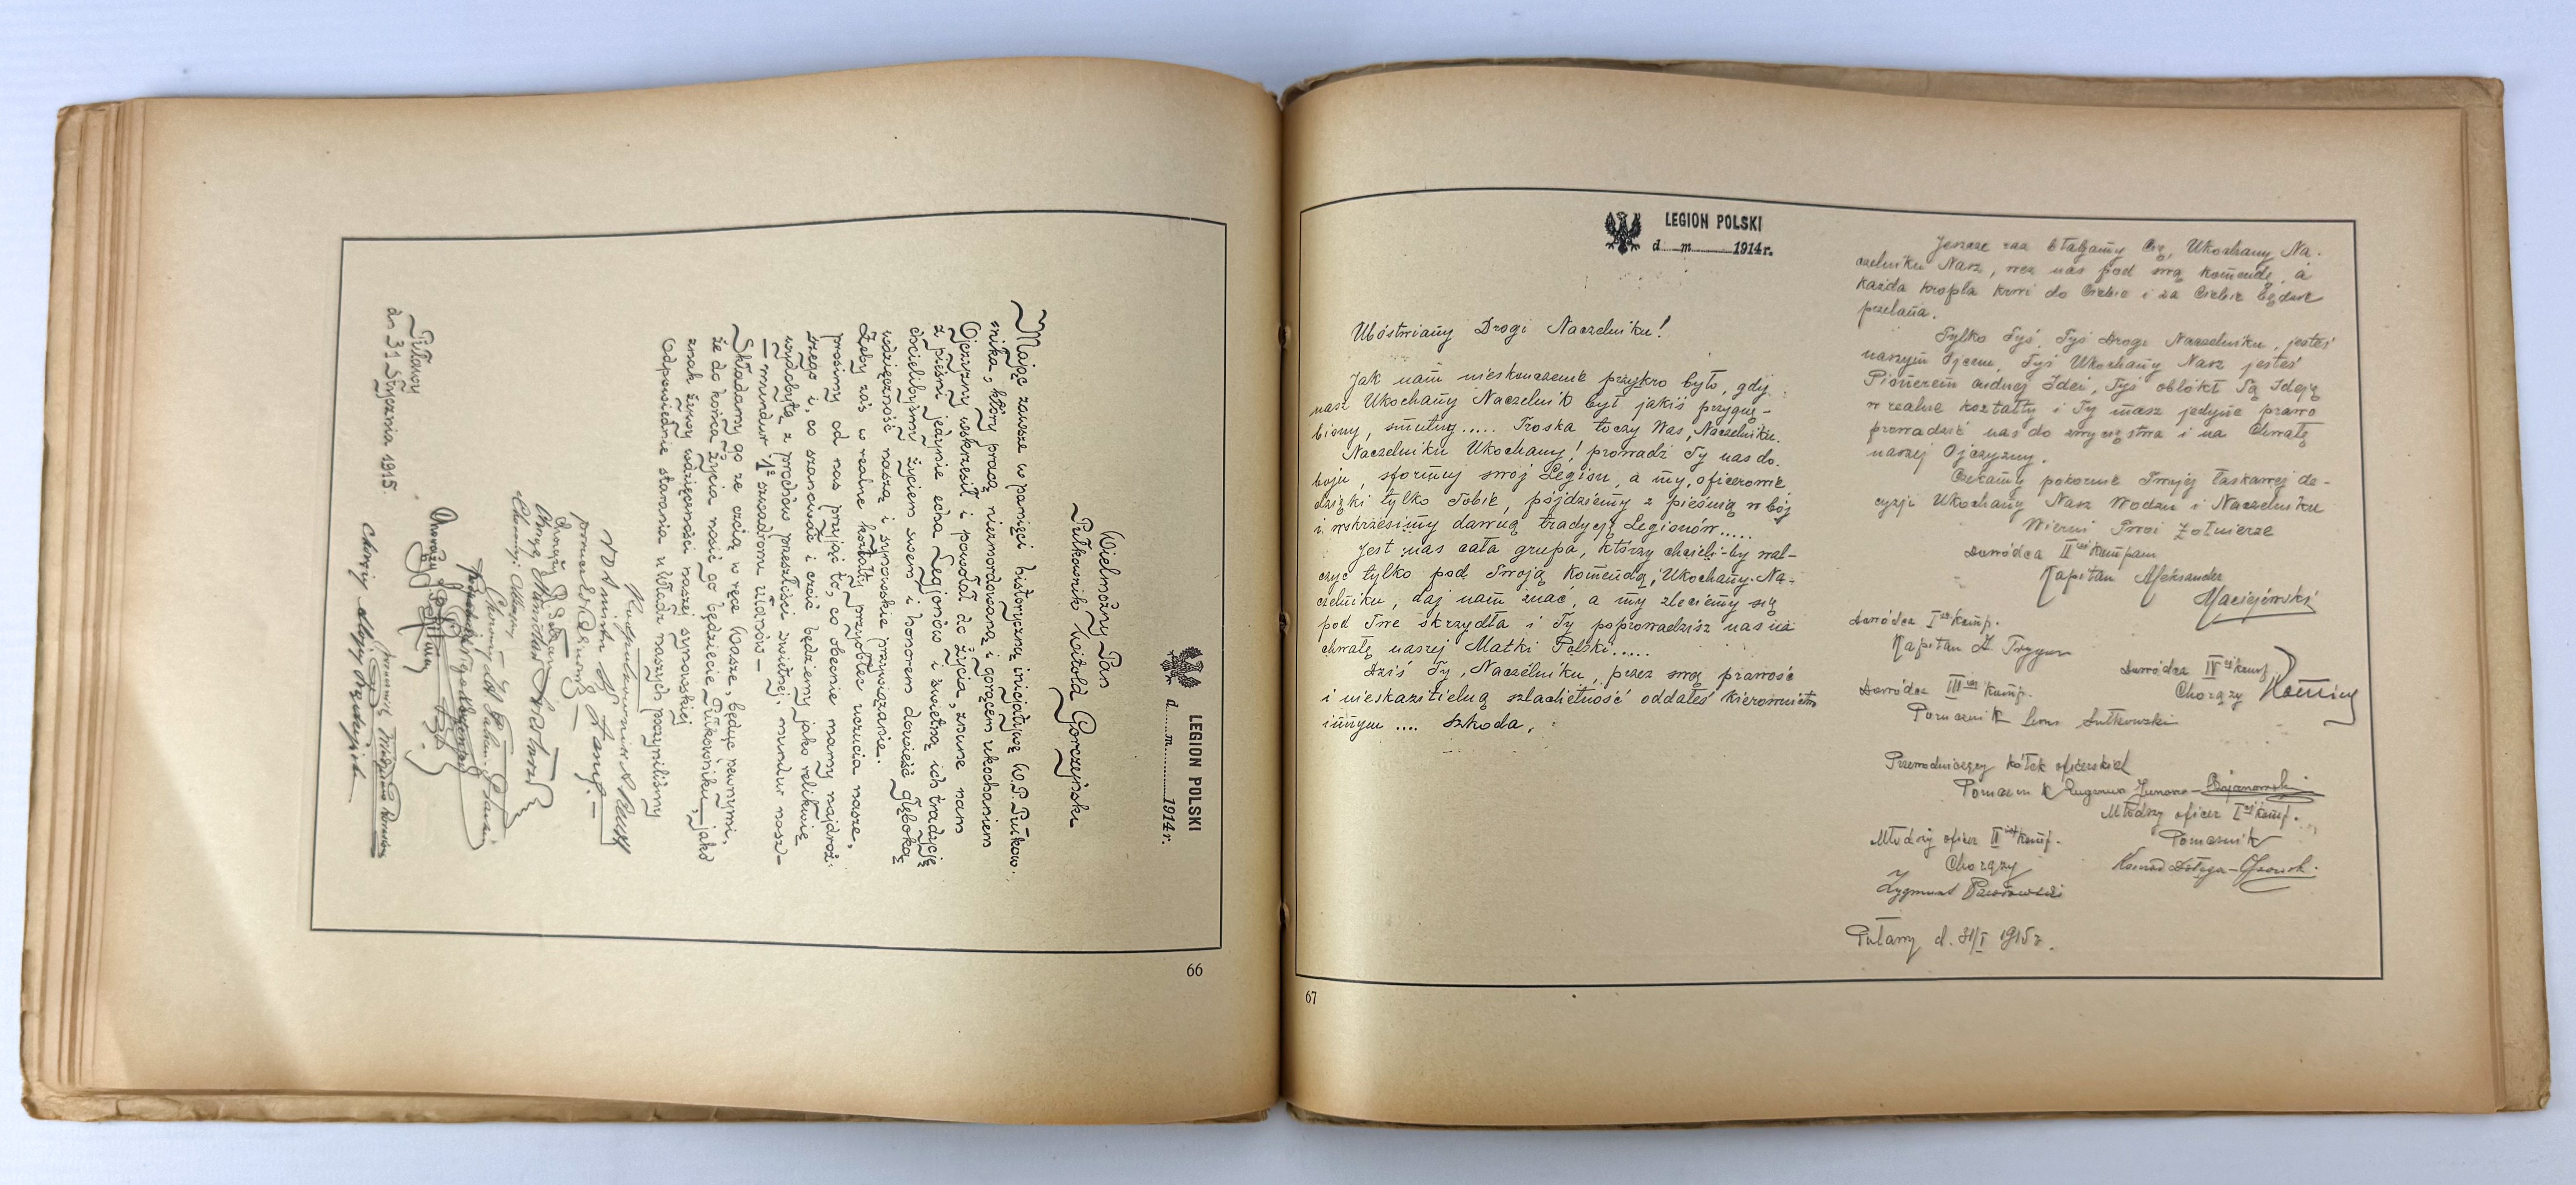 LEGION POLSKI
d. m. 1914 r.
Wielmożny Pan
Pułkownik Witold Gorczyński
Mając zawsze w pamięci historyczną inicjatywę W. P. Pułkow-
nika, który pracą niezmordowaną i gorącem ukochaniem
Ojczyzny wskrzesił i powołał do życia, znane nam
z pieśni jedynie echa Legjonów i świetną ich tradycję
chcielibyśmy życiem swem i honorem dowieść głęboką
wdzięczność naszą i synowskie przywiązanie.
Żeby zaś w realne kształty przyoblec uczucia nasze,
prosimy od nas przyjąć to, co obecnie mamy najdroż-
szego i, co szanować i czcić będziemy jako relikwię
wydobytą z prochów przeszłości świetnej, mundur nasz—
— mundur 1º szwadronu ułanów —
Składamy go ze czcią w ręce Wasze, będąc pewnymi,
że do końca życia nosić go będziecie Pułkowniku, jako
znak żywy wdzięczności naszej synowskiej
Odpowiednie starania u Władz naszych poczyniliśmy
Puławy
dn 31 Stycznia 1915.
66
LEGION POLSKI
d. m. 1914 r.
Ubóstwiany Drogi Naczelniku!
Jak nam nieskończenie przykro było, gdy
nasz Ukochany Naczelnik był jakiś przygnę-
biony, smutny..... Troska toczy Was, Naczelniku.
Naczelniku Ukochany! prowadź Ty nas do
boju, sformuj swój Legion, a my, oficerowie
dzięki tylko Tobie, pójdziemy z pieśnią w bój
i wskrzesimy dawną tradycję Legionów.....
Jest nas cała grupa, którzy chcieli-by wal-
czyć tylko pod Twoją Komendą, Ukochany Na-
czelniku, daj nam znać, a my zleciemy się
pod Twe skrzydła i Ty poprowadzisz nas na
chwałę naszej Matki Polski.....
Dziś Ty, Naczelniku, przez swą prawość
i nieskazitelną szlachetność oddałeś kierownictwo
innym .... szkoda.
Jeszcze raz błagamy Cię, Ukochany Na-
czelniku Nasz, weź nas pod swą komendę, a
każda kropla krwi do Ciebie i za Ciebie będzie
przelana.
Tylko Tyś, Tyś Drogi Naczelniku, jesteś
naszym Ojcem, Tyś Ukochany Nasz jesteś
Pionierem cudnej Idei, Tyś oblókł Tą Ideję
w realne kształty i Ty masz jedyne prawo
prowadzić nas do zwycięstwa i na Chwałę
naszej Ojczyzny.
Czekamy pokornie Twojej łaskawej de-
cyzji Ukochany Nasz Wodzu i Naczelniku
Wierni Twoi Żołnierze
Dowódca II kamp.
Kapitan Aleksander
Maciejewski
Dowódca I kamp.
Kapitan
Dowódca IV kamp.
Chorąży
Dowódca III kamp.
Porucznik Sułkowski
Przewodniczący kółek oficerskich
Porucznik Eugeniusz Junosza-
Młodszy oficer I kamp.
Porucznik
Konrad Dołęga-
Młodszy oficer II kamp.
Chorąży
Zygmunt
Puławy d. 31/I 1915 r.
67